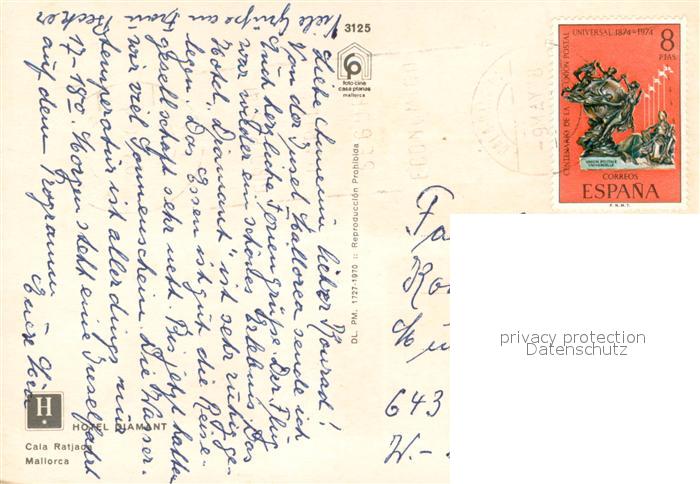 Liebe Annemie, lieber Konrad!
Von der Insel Mallorca sende ich
Euch herzliche Feriengrüße. Der Flug
war wieder ein schönes Erlebnis. Das
Hotel "Diamant" ist sehr ruhig ge-
legen. Das Essen ist gut, die Reise-
gesellschaft sehr nett. Bis jetzt hatten
wir viel Sonnenschein. Die Wasser-
temperatur ist allerdings nur
17-18°. Morgen steht eine Inselfahrt
auf dem Programm.
Eure
Viele Grüße an Becker
3125
foto-cine
casa planas
mallorca
DL. PM. 1727-1970 :: Reproducción Prohibida
H
HOTEL DIAMANT
Cala Ratjada
Mallorca
CENTENARIO DE LA UNION POSTAL UNIVERSAL 1874-1974
8
PTAS
UNION POSTALE
UNIVERSELLE
CORREOS
ESPAÑA
F.N.M.T.
-9 MAY
643
W.-
privacy protection
Datenschutz